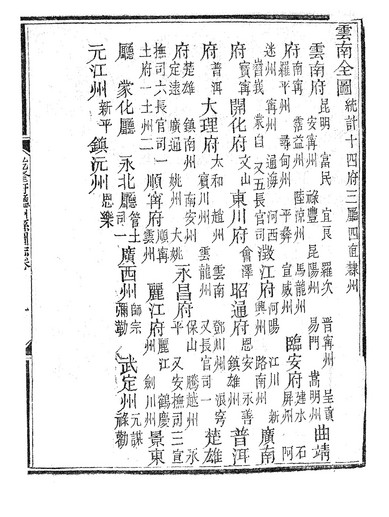 雲南全圖 統計十四府三廳四直隸州
雲南府 昆明 富民 宜良 羅次 晉寧州 呈貢 安寧州 祿豐 昆陽州 易門 嵩明州 曲靖
府 南寧 霑益州 陸涼州 馬龍州 羅平州 尋甸州 平彝 宣威州 臨安府 建水 石屏州 阿
迷州 寧州 通海 河西 嶍峩 蒙自 又五長官司 澂江府 河陽 江川 新興州 路南州 廣南
府 寶寧 開化府 文山 東川府 會澤 昭通府 恩安 永善 鎮雄州 普洱
府 普洱 大理府 太和 趙州 雲南 鄧川州 浪穹 賓川州 雲龍州 又長官司一 楚雄
府 楚雄 鎮南州 南安州 定遠 廣通 姚州 大姚 永昌府 保山 騰越州 永平 又安撫司三 宣
撫司六 長官司一 土府一 土州二 順寧府 順寧 雲州 麗江府 麗江 鶴慶州 劍川州 景東
廳 蒙化廳 永北廳 管土司一 廣西州 師宗 彌勒 武定州 元謀 祿勸
元江州 新平 鎮沅州 恩樂